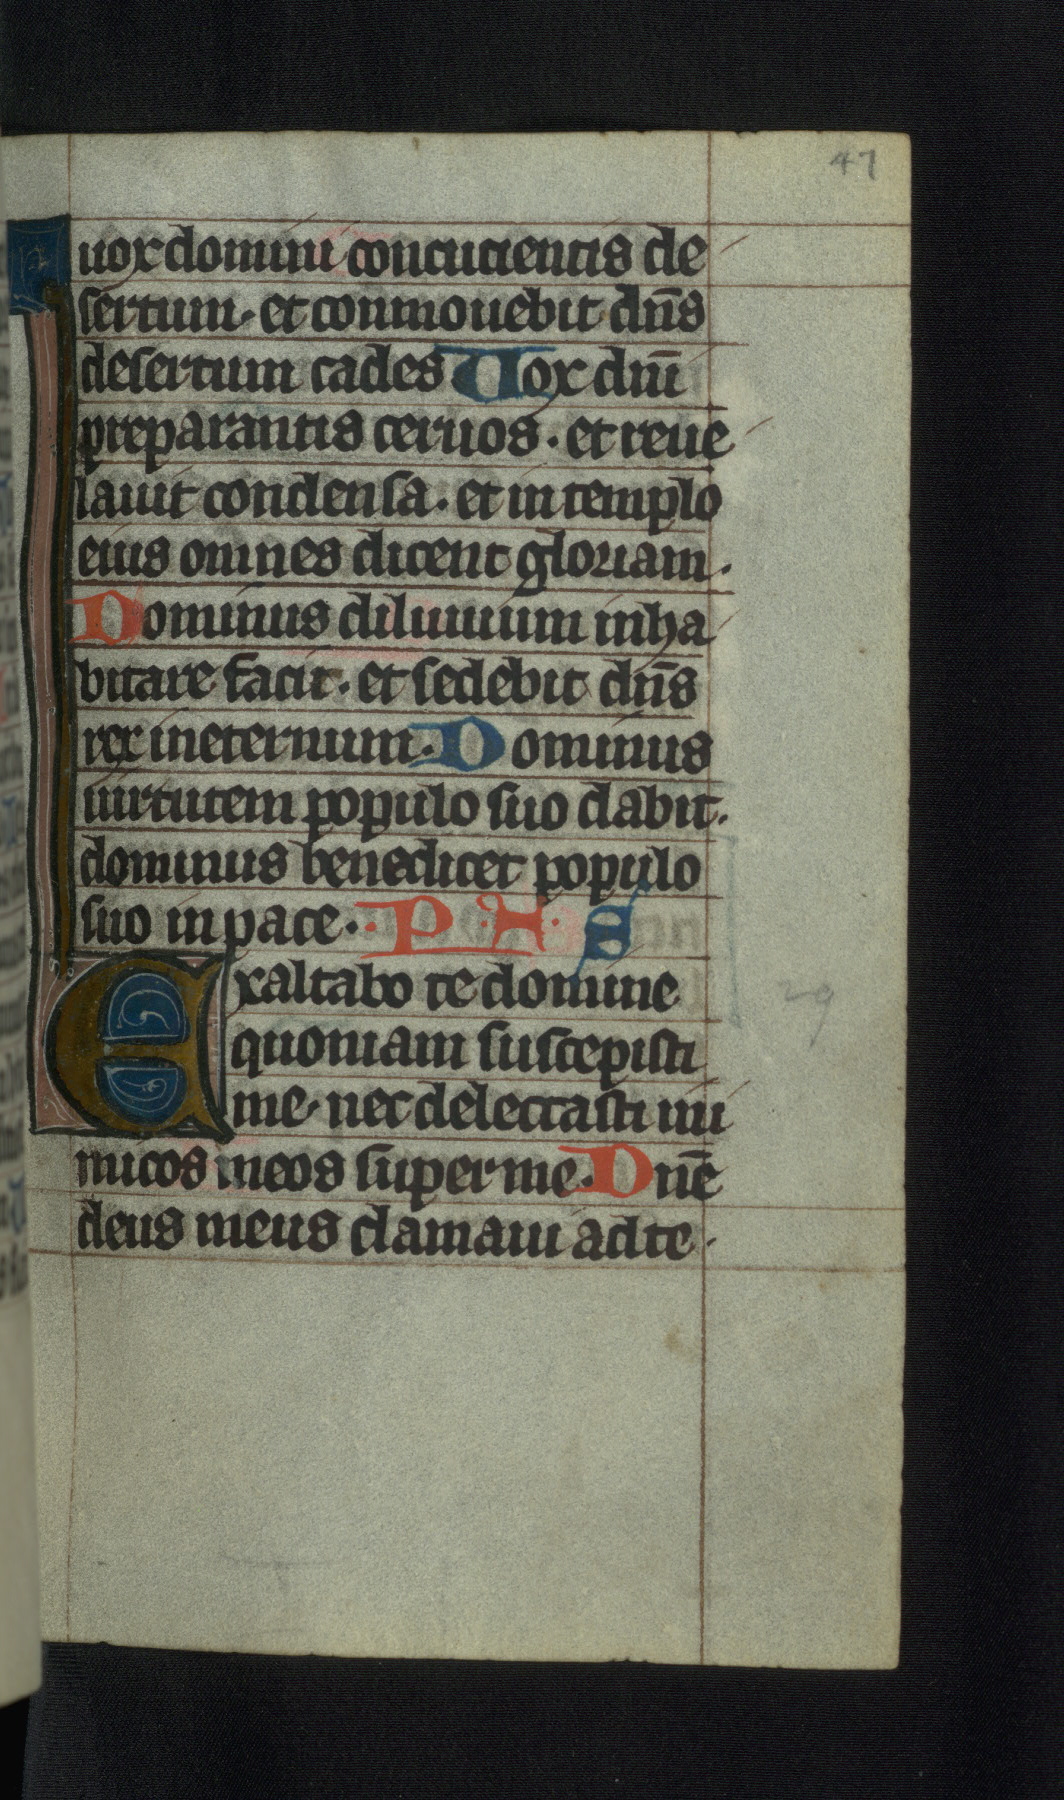 47
uox domini concutientis de
sertum. et conmouebit dn̄s
desertum cades Uox dn̄i
preparantis ceruos. et reue
lauit condensa. et in templo
eius omnes dicent gloriam.
Dominus diluuium inha
bitare facit. et sedebit dn̄s
rex in eternum. Dominus
uirtutem populo suo dabit.
dominus benedicet populo
suo in pace.
Exaltabo te domine
29
quoniam suscepisti
me. nec delectasti ini
micos meos super me. Dn̄e
deus meus clamaui ad te.